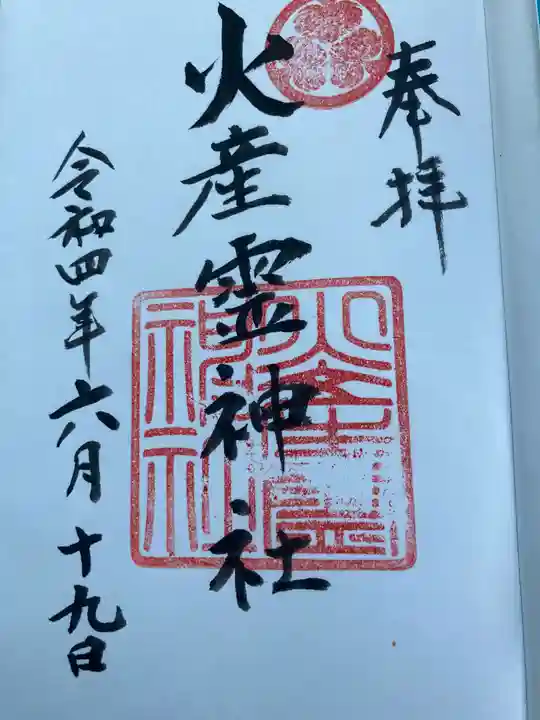 奉拝
火産霊神社
火産霊
神社
令和四年六月十九日